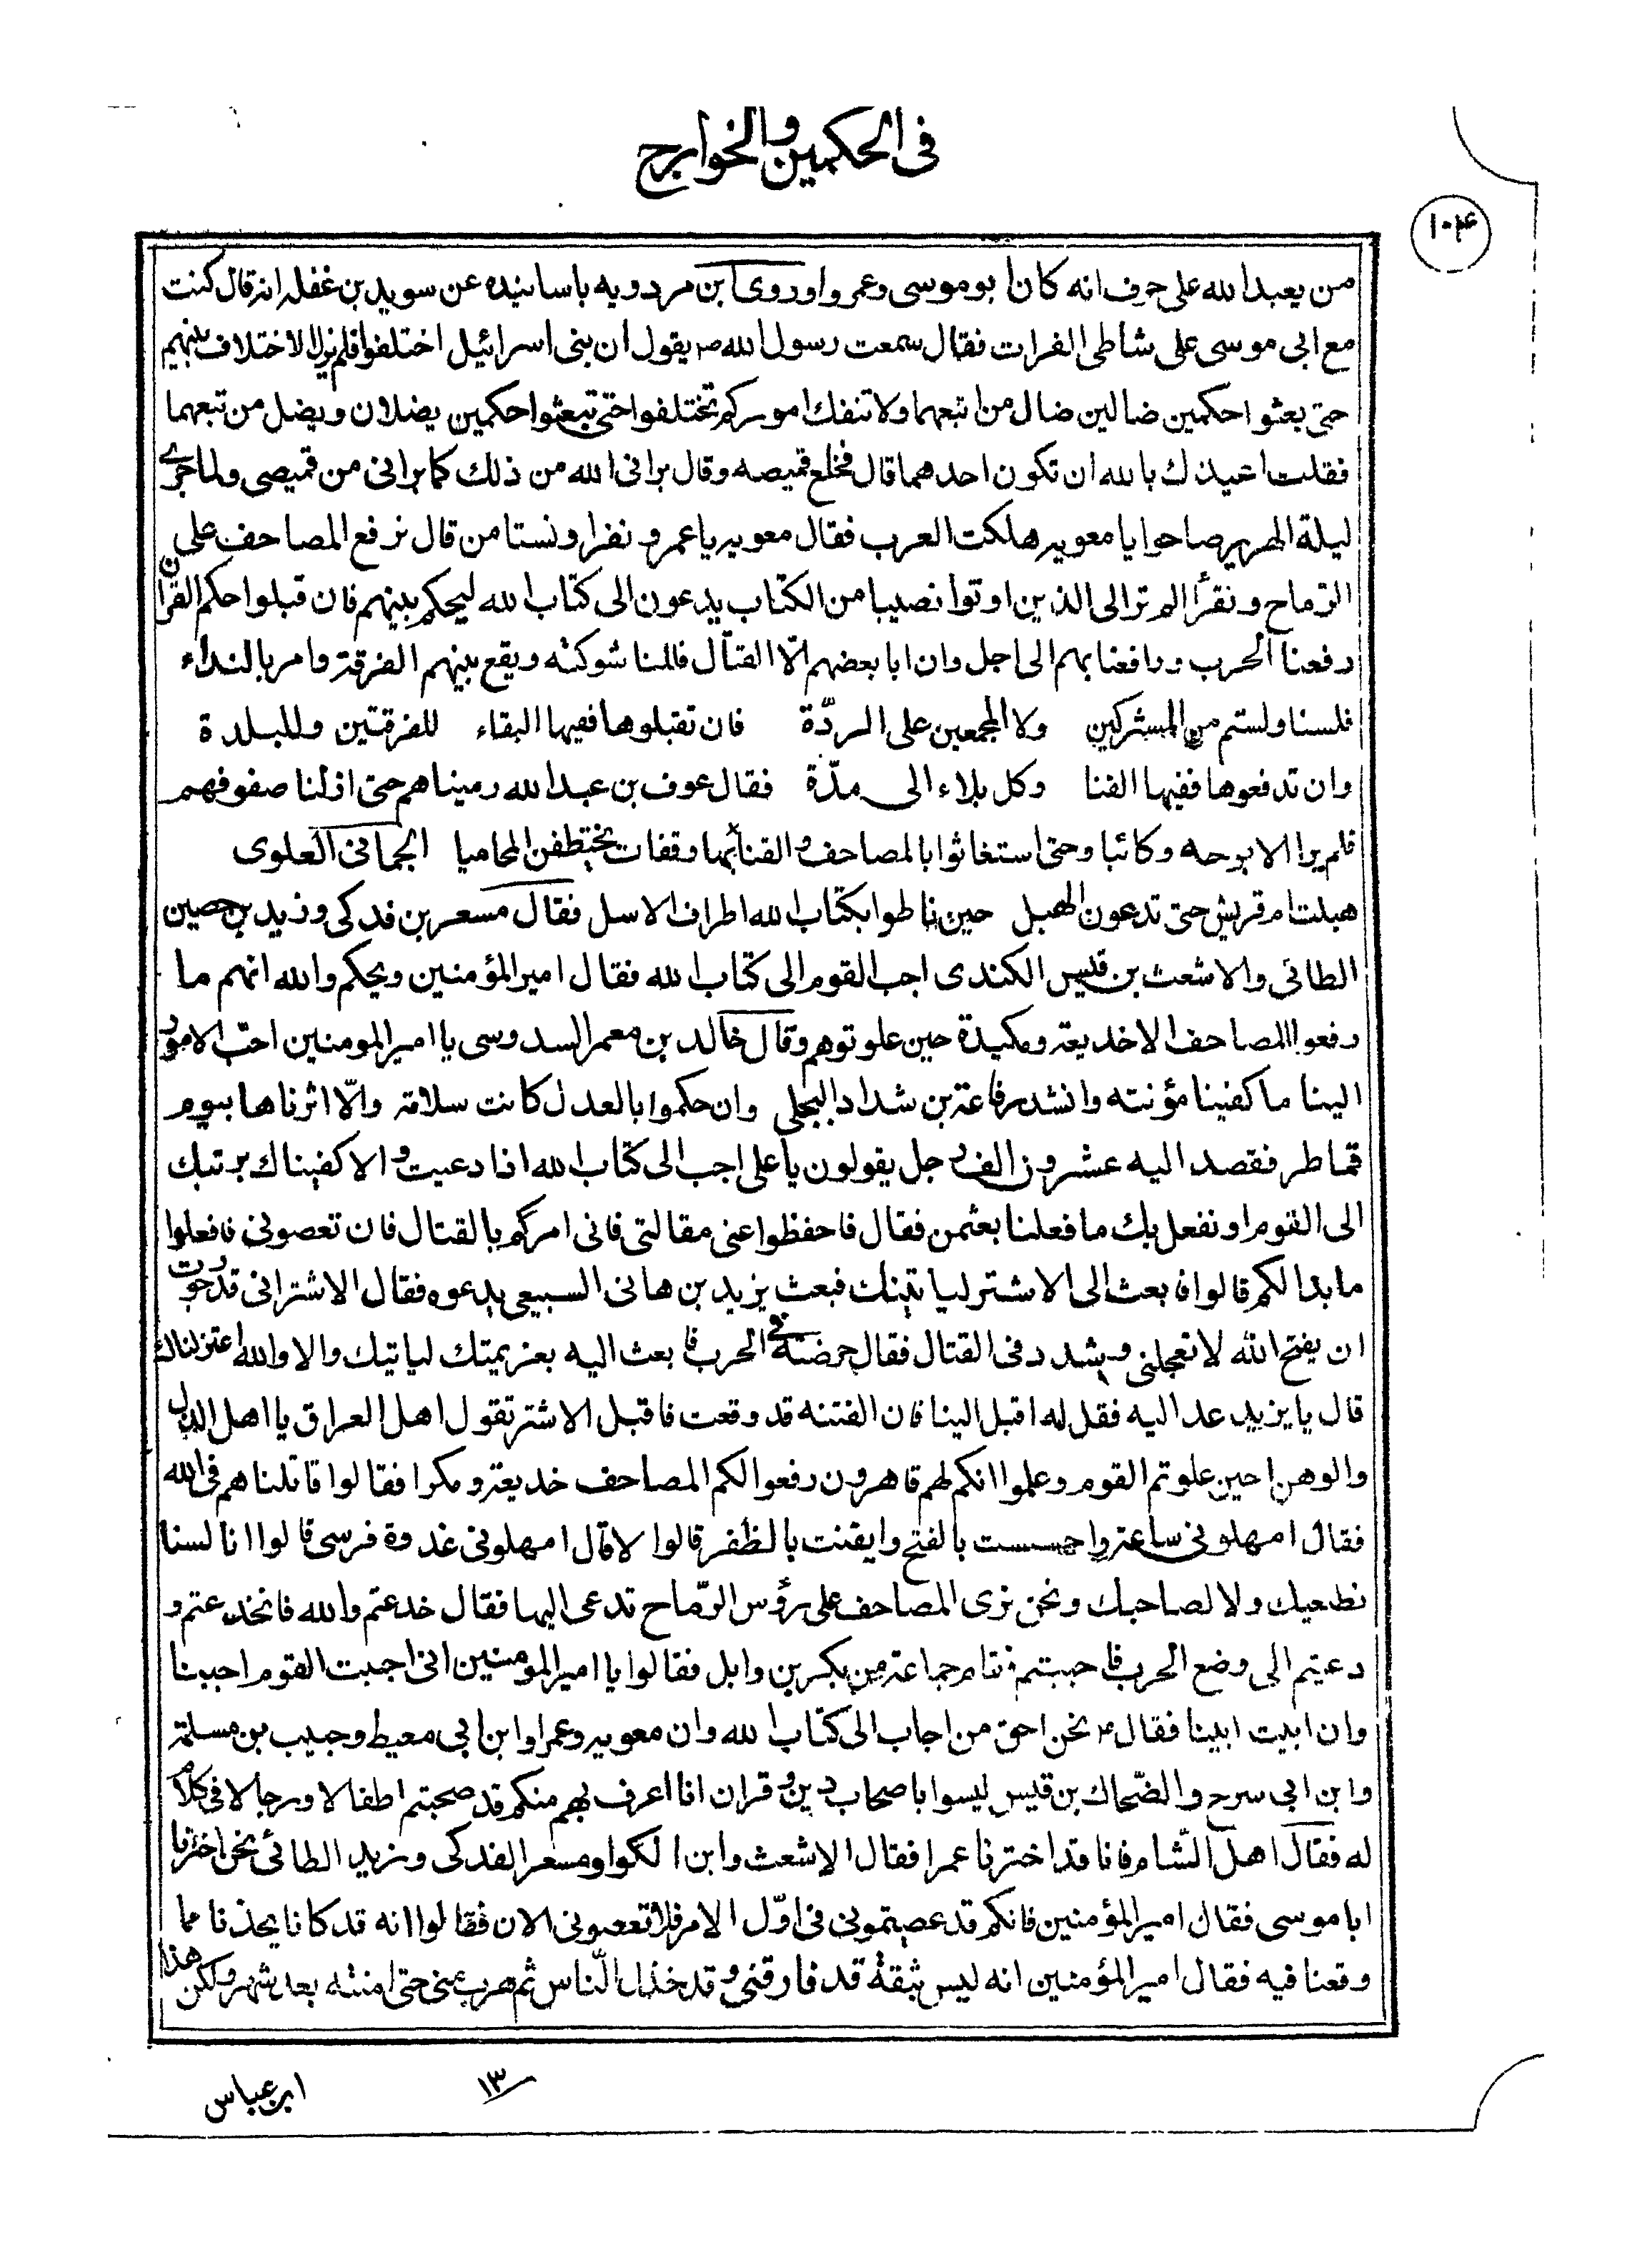 فى الحكمين والخوارج
١٠٤
من يعبد الله على حرف انه كان ابو موسى وعمرو اوروى ابن مردويه باسانيده عن سويد بن غفله انه قال كنت
مع ابى موسى على شاطى الفرات فقال سمعت رسول الله ص يقول ان بنى اسرائيل اختلفوا فلم يزل الاختلاف بينهم
حتى بعثوا حكمين ضالين ضال من اتبعهما ولا تنفك اموركم تختلفوا حتى تبعثوا حكمين يضلان ويضل من تبعهما
فقلت اعيذك بالله ان تكون احدهما قال فخلع قميصه وقال برانى الله من ذلك كما برانى من قميصى ولما جرى
ليلة الهرير صاحوا يا معويه هلكت العرب فقال معويه يا عمرو نفر او نستامن قال نرفع المصاحف على
الرماح ونقرأ الم تر الى الذين اوتوا نصيبا من الكتاب يدعون الى كتاب الله ليحكم بينهم فان قبلوا حكم القران
رفعنا الحرب ورافعنا بهم الى اجل وان ابا بعضهم الّا القتال فللنا شوكته ويقع بينهم الفرقة وامر بالنداء
فلسنا ولستم من المشركين ولا المجمعين على الردّة فان تقبلوها ففيها البقاء للفرقتين وللبلدة
وان تدفعوها ففيها الفنا وكل بلاء الى مدّة فقال عوف بن عبد الله رميناهم حتى ازلنا صفوفهم
فلم يرا الا بوحه وكائبا وحتى استغاثوا بالمصاحف والقنا بها وقفات يختطفن المحاميا الحمانى العلوى
هبلت ام قريش حتى تدعون الهبل حين ناطوا بكتاب الله اطراف الاسل فقال مسعر بن فدكى وزيد بن حصين
الطائى والاشعث بن قيس الكندى اجب القوم الى كتاب الله فقال امير المؤمنين ويحكم والله انهم ما
رفعوا المصاحف الا خديعة ومكيدة حين علوتوهم وقال خالد بن معمر السدوسى يا امير المومنين احبّ الامور
الينا ما كفينا مؤنته وانشد رفاعة بن شداد البجلى وان حكموا بالعدل كانت سلامة والّا اثرناها بيوم
قماطر فقصد اليه عشرون الف رجل يقولون يا على اجب الى كتاب الله اذا دعيت والا كفيناك برتبك
الى القوم او نفعل بك ما فعلنا بعثمن فقال فاحفظوا عنى مقالتى فانى امركم بالقتال فان تعصونى فافعلوا
ما بدا لكم قالوا فابعث الى الاشتر لياتينك فبعث يزيد بن هانى السبيعى يدعوه فقال الاشتر انى قد رجوت
ان يفتح الله لا تعجلنى وشدد فى القتال فقال حرضته فى الحرب فابعث اليه بعزيمتك لياتيك والا والله اعتزلناك
قال يا يزيد عد اليه فقل له اقبل الينا فان الفتنه قد وقعت فاقبل الاشتر تقول اهل العراق يا اهل الذل
والوهن احين علوتم القوم وعلموا انكم لهم قاهرون رفعوا لكم المصاحف خديعة ومكرا فقالوا قاتلناهم فى الله
فقال امهلونى ساعة واحسست بالفتح وايقنت بالظفر قالوا لا قال امهلونى غدوة فرسى قالوا انا لسنا
نطعيك ولا لصاحبك ونحن نرى المصاحف على رؤس الرّماح تدعى اليها فقال خدعتم والله فانخدعتم و
دعيتم الى وضع الحرب فاجبتم فقام جماعة من بكر بن وابل فقالوا يا امير المومنين انى اجبت القوم اجبنا
وان ابيت ابينا فقال ع نحن احق من اجاب الى كتاب الله وان معويه وعمرا وابن ابى معيط وحبيب بن مسلمة
وابن ابى سرح والضّحاك بن قيس ليسوا باصحاب دين وقران انا اعرف بهم منكم قد صحبتم اطفالا ورجالا فى كلام
له فقال اهل الشّام فانا قد اخترنا عمرا فقال الاشعث وابن الكوا ومسعر الفدكى وزيد الطائى نحن اخترنا
ابا موسى فقال امير المؤمنين فانكم قد عصيتمونى فى اوّل الامر فلا تعصونى الان فقالوا انه قد كانا يحذنا مما
وقعنا فيه فقال امير المؤمنين انه ليس بثقة قد فارقنى وقد خذل النّاس ثم هرب منى حتى امنته بعد شهر ولكن هذا
١٣
ابن عباس